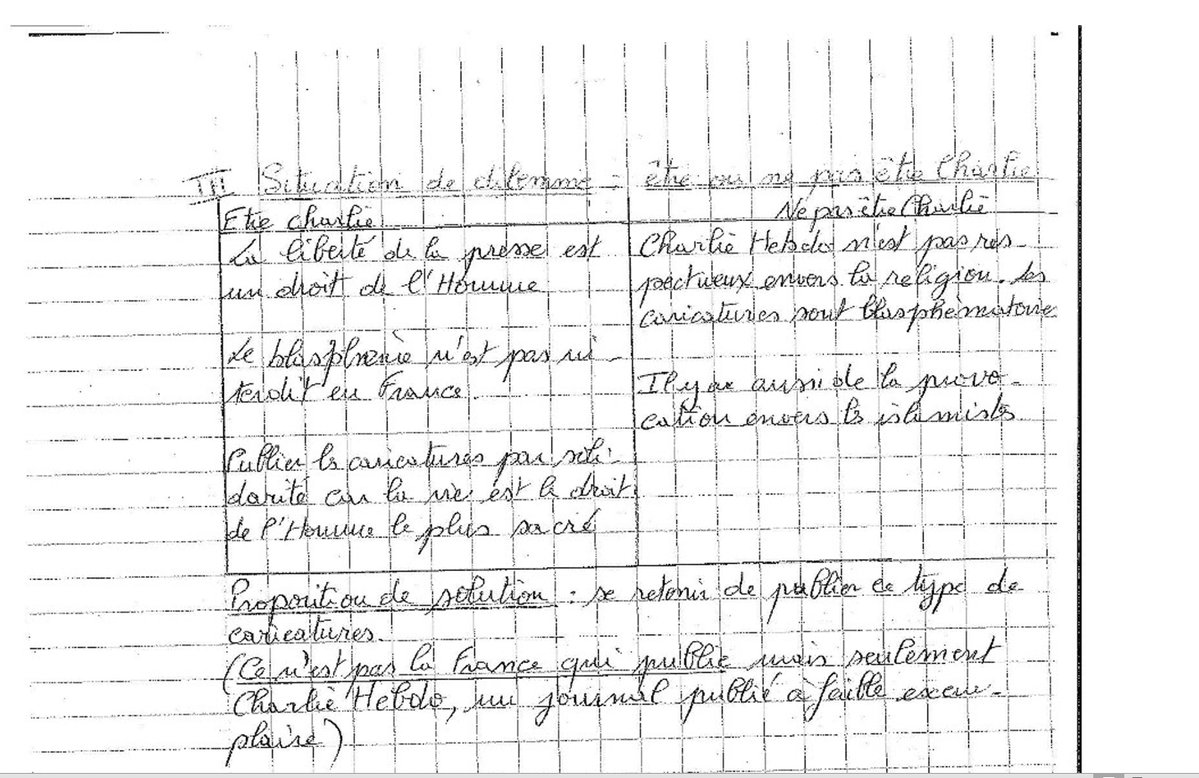 III Situation de dilemme : être ou ne pas être Charlie
Etre charlie
Ne pas être Charlie
La liberté de la presse est
un droit de l'Homme
Le blasphemie n'est pas in-
terdit en France.
Publier les caricatures par soli-
darité car la vie est le droit
de l'Homme le plus sacré
Charlie Hebdo n'est pas res-
pectueux envers la religion. Les
caricatures sont blasphématoire
Il y a aussi de la provo-
cation envers les islamistes.
Proposition de solution : se retenir de publier ce type de
caricatures.
(Ce n'est pas la France qui publie mais seulement
Charlie Hebdo, un journal publié à faible exem-
plaire)